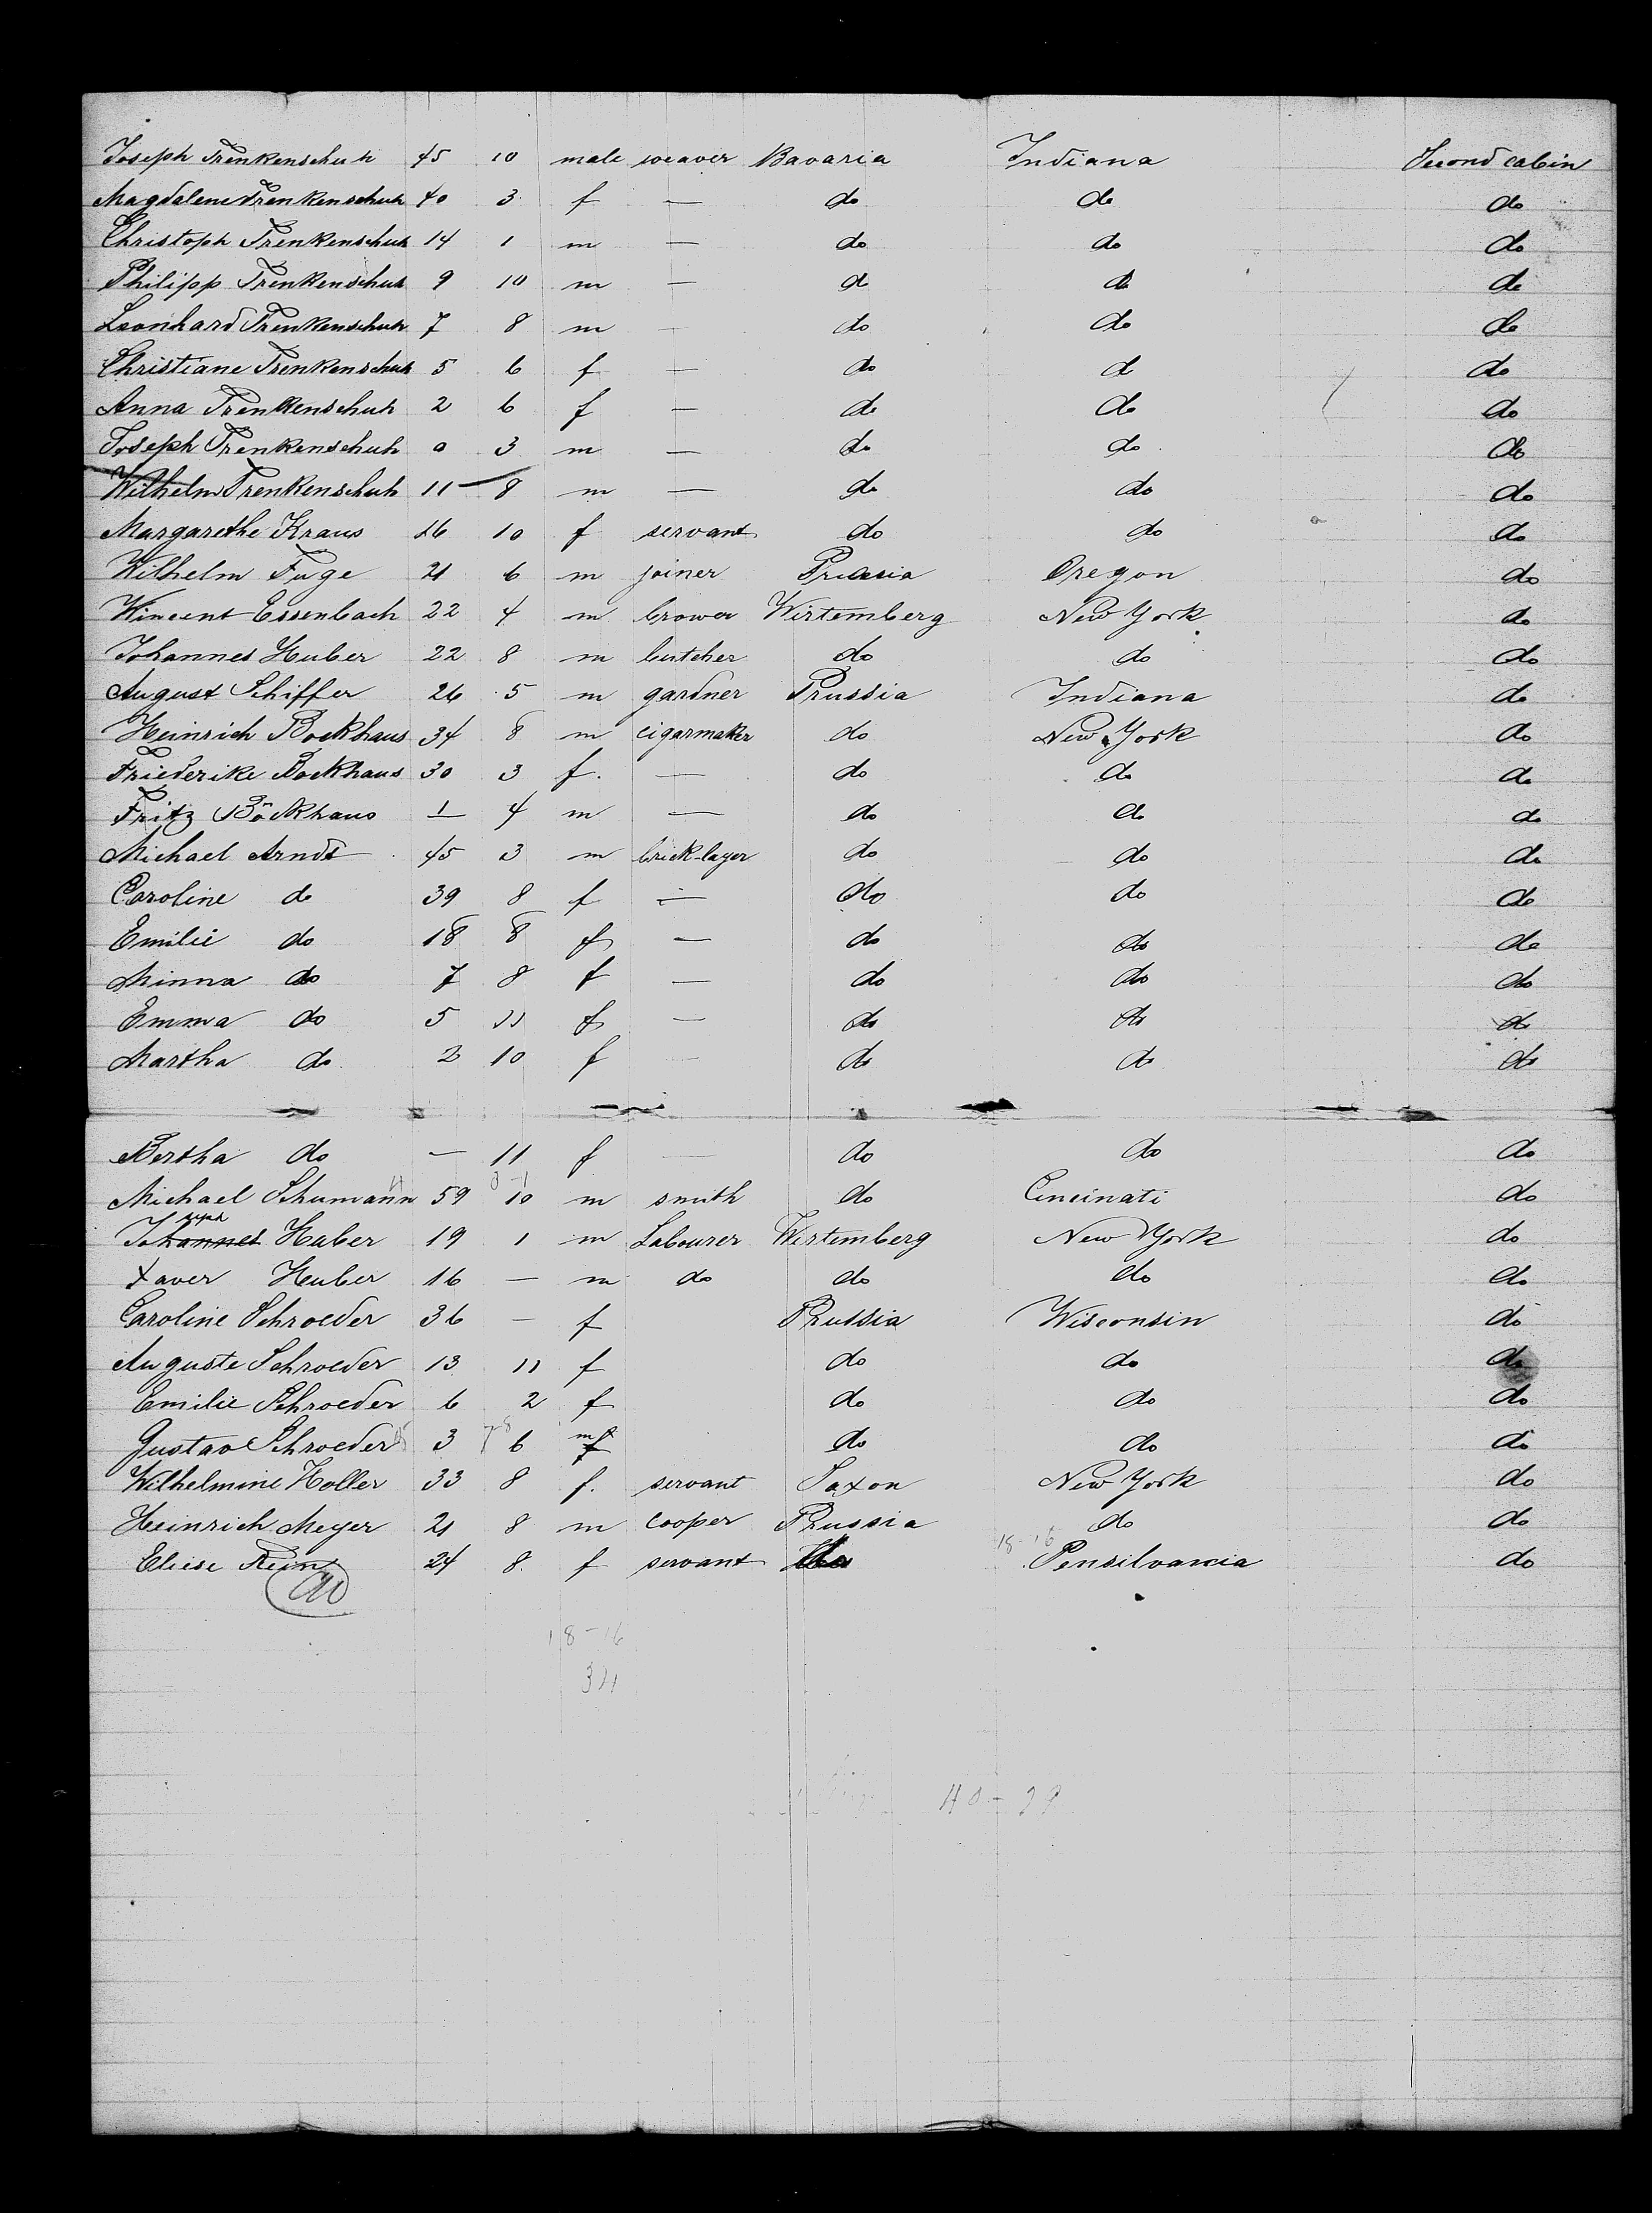 Joseph Trenkenschuh 45 10 male weaver Bavaria Indiana Second cabin
Magdalene Trenkenschuh 40 3 f — do do do
Christoph Trenkenschuh 14 1 m — do do do
Philipp Trenkenschuh 9 10 m — do do do
Leonhard Trenkenschuh 7 8 m — do do do
Christiane Trenkenschuh 5 6 f — do do do
Anna Trenkenschuh 2 6 f — do do do
Joseph Trenkenschuh 0 3 m — do do do
Wilhelm Trenkenschuh 11 8 m — do do do
Margarethe Kraus 26 10 f servant do do do
Wilhelm Fuge 21 6 m joiner Prussia Oregon do
Wincent Essenbach 22 4 m brower Wirtemberg New York do
Johannes Huber 22 8 m butcher do do do
August Schiffer 26 5 m gardner Prussia Indiana do
Heinrich Bockhaus 34 8 m cigarmaker do New York do
Friederike Bockhaus 30 3 f. — do do do
Fritz Böckhaus 1 4 m — do do do
Michael Arndt 45 3 m brick-layer do do do
Caroline do 39 8 f — do do do
Emilie do 18 8 f — do do do
Minna do 7 8 f — do do do
Emma do 5 11 f — do do do
Martha do 2 10 f — do do do
Bertha do — 11 f — do do do
Michael Schumann 59 10 m smith do Cincinati do
Johannes seph Huber 19 1 m Labourer Wirtemberg New York do
Xaver Huber 16 — m do do do do
Caroline Schroeder 36 — f Prussia Wisconsin do
Auguste Schroeder 13 11 f do do do
Emilie Schroeder 6 2 f do do do
Gustav Schroeder 3 6 m f do do do
Wilhelmine Holler 33 8 f. servant Saxon New York do
Heinrich Meyer 21 8 m cooper Prussia do do
18-16
Eliese 24 8 f servant do Pensilvancia do
18-16
34
40-29